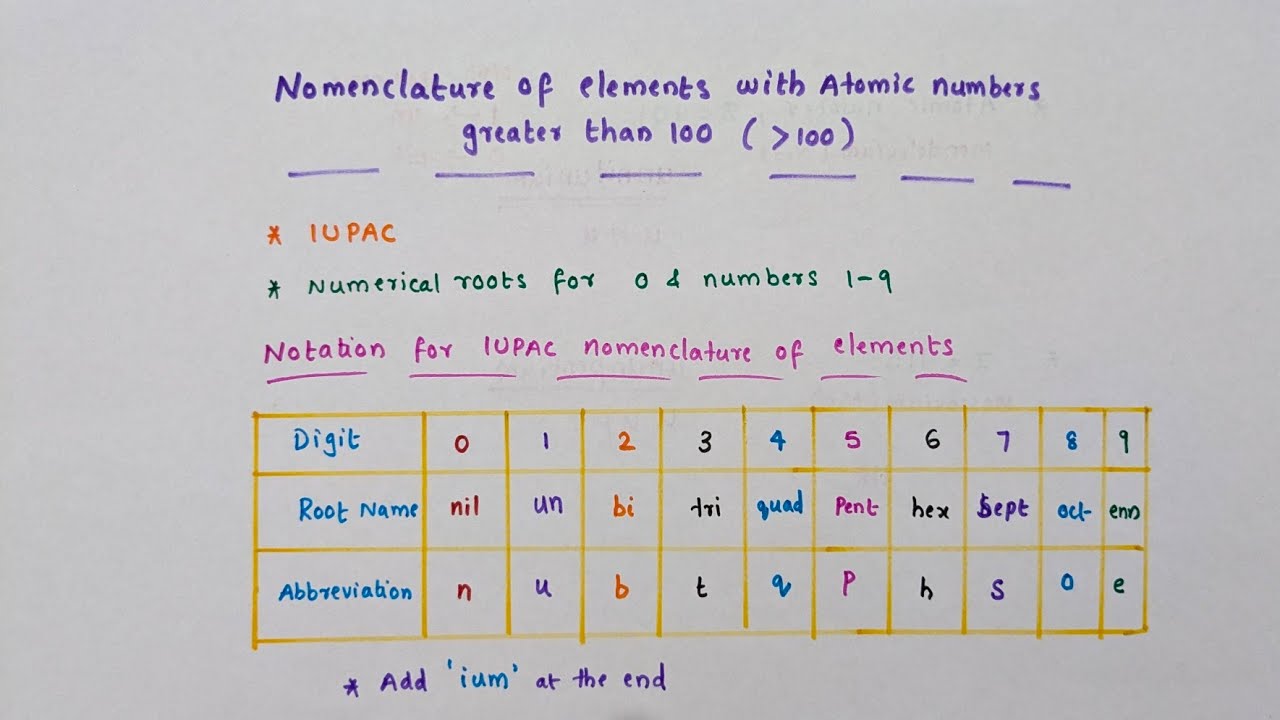 Nomenclature of elements with Atomic numbers
greater than 100 (>100)
* IUPAC
* Numerical roots for 0 & numbers 1-9
Notation for IUPAC nomenclature of elements
Digit 0 1 2 3 4 5 6 7 8 9
Root Name nil un bi tri quad Pent hex Sept oct enn
Abbreviation n u b t q P h s o e
* Add 'ium' at the end